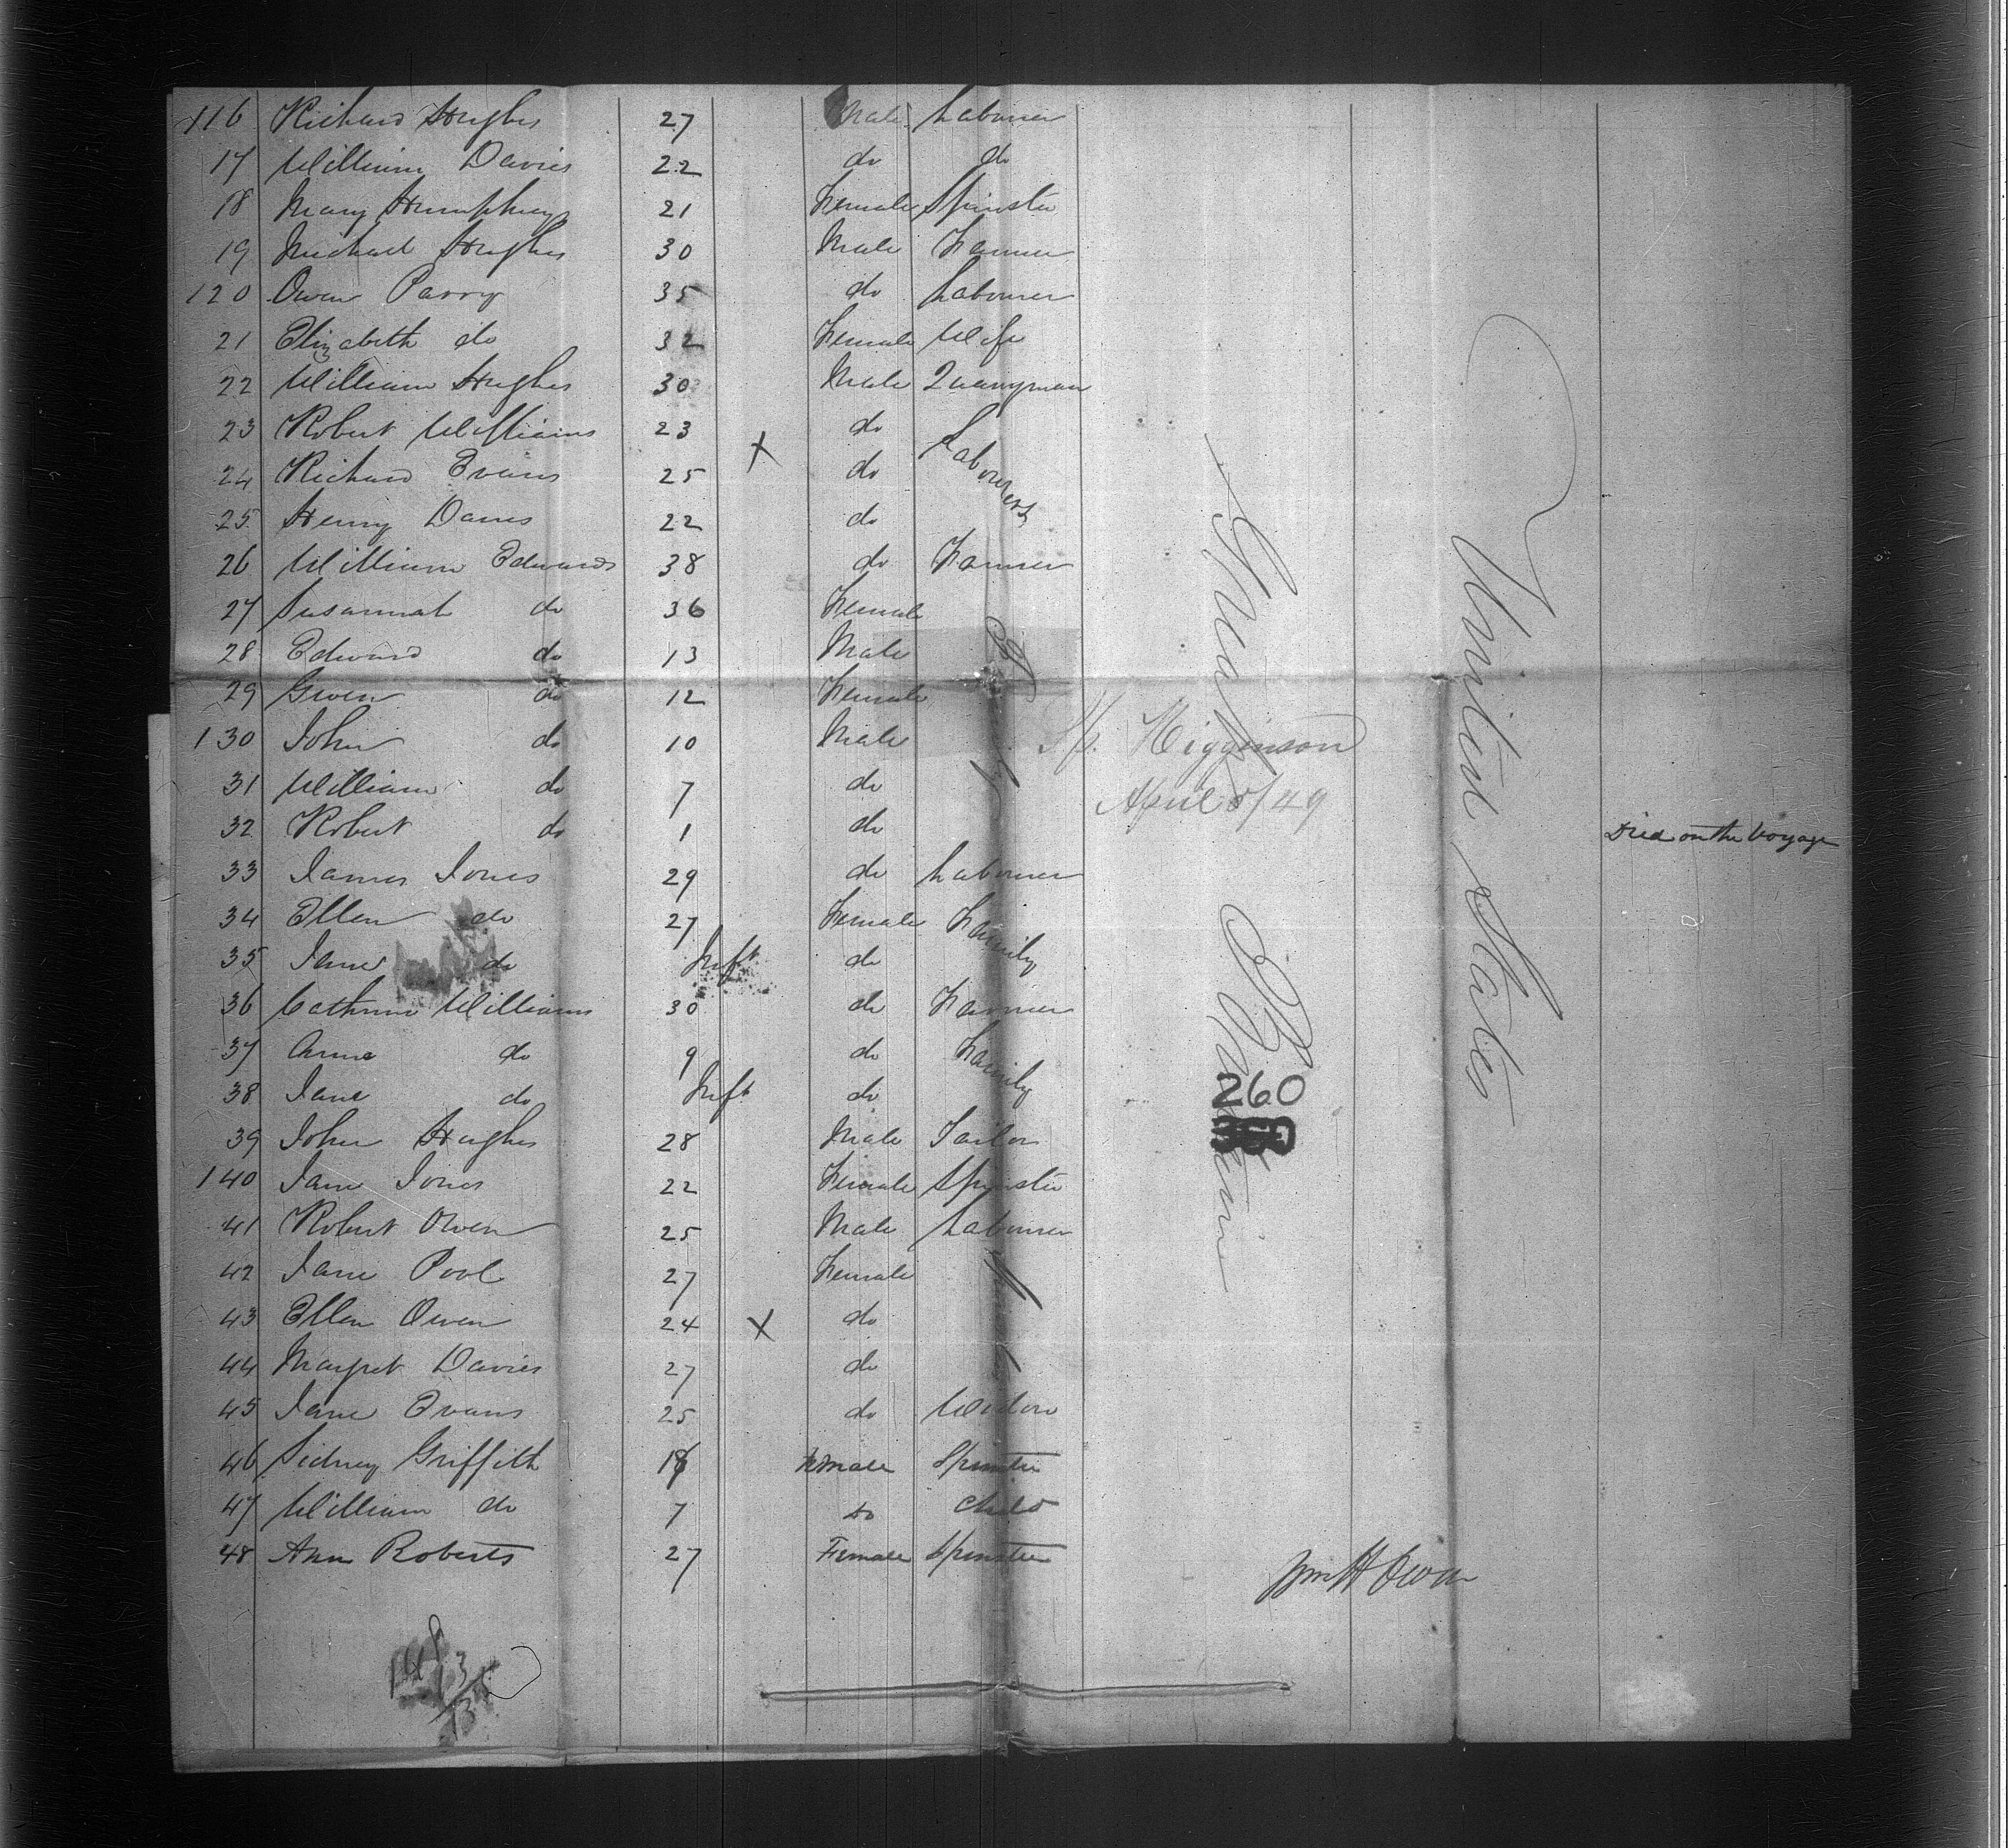 116 Richard Hughes 27 Male Labourer
17 William Davies 22 do do
18 Mary Humphreys 21 Female Spinster
19 Michael Hughes 30 Male Farmer
120 Owen Parry 35 do Labourer
21 Elizabeth do 32 Female Wife
22 William Hughes 30 Male Quarryman
23 Robert Williams 23 do
24 Richard Evans 25 X do Labourers
25 Henry Danes 22 do
26 William Edwards 38 do Farmer
27 Susannah do 36 Female
28 Edward do 13 Male
29 Gwen do 12 Female
130 John do 10 Male
31 William do 7 do
32 Robert do 1 do Died on the Voyage
33 James Jones 29 do Labourer
34 Ellen do 27 Female Family
35 Jane do Inft do
36 Cathrine Williams 30 do Farmer
37 Anne do 9 do Family
38 Jane do Inft do
39 John Hughes 28 Male Tailor
140 Jane Jones 22 Female Spinster
41 Robert Owen 25 Male Labourer
42 Jane Pool 27 Female
43 Ellen Owen 24 X do
44 Margret Davies 27 do
45 Jane Evans 25 do Widow
46 Sidney Griffith 18 Female Spinster
47 William do 7 do Child
48 Ann Roberts 27 Female Spinster
Great Britain
United States
Higginson
April 5/49
260
Wm H Owen
148
13
135